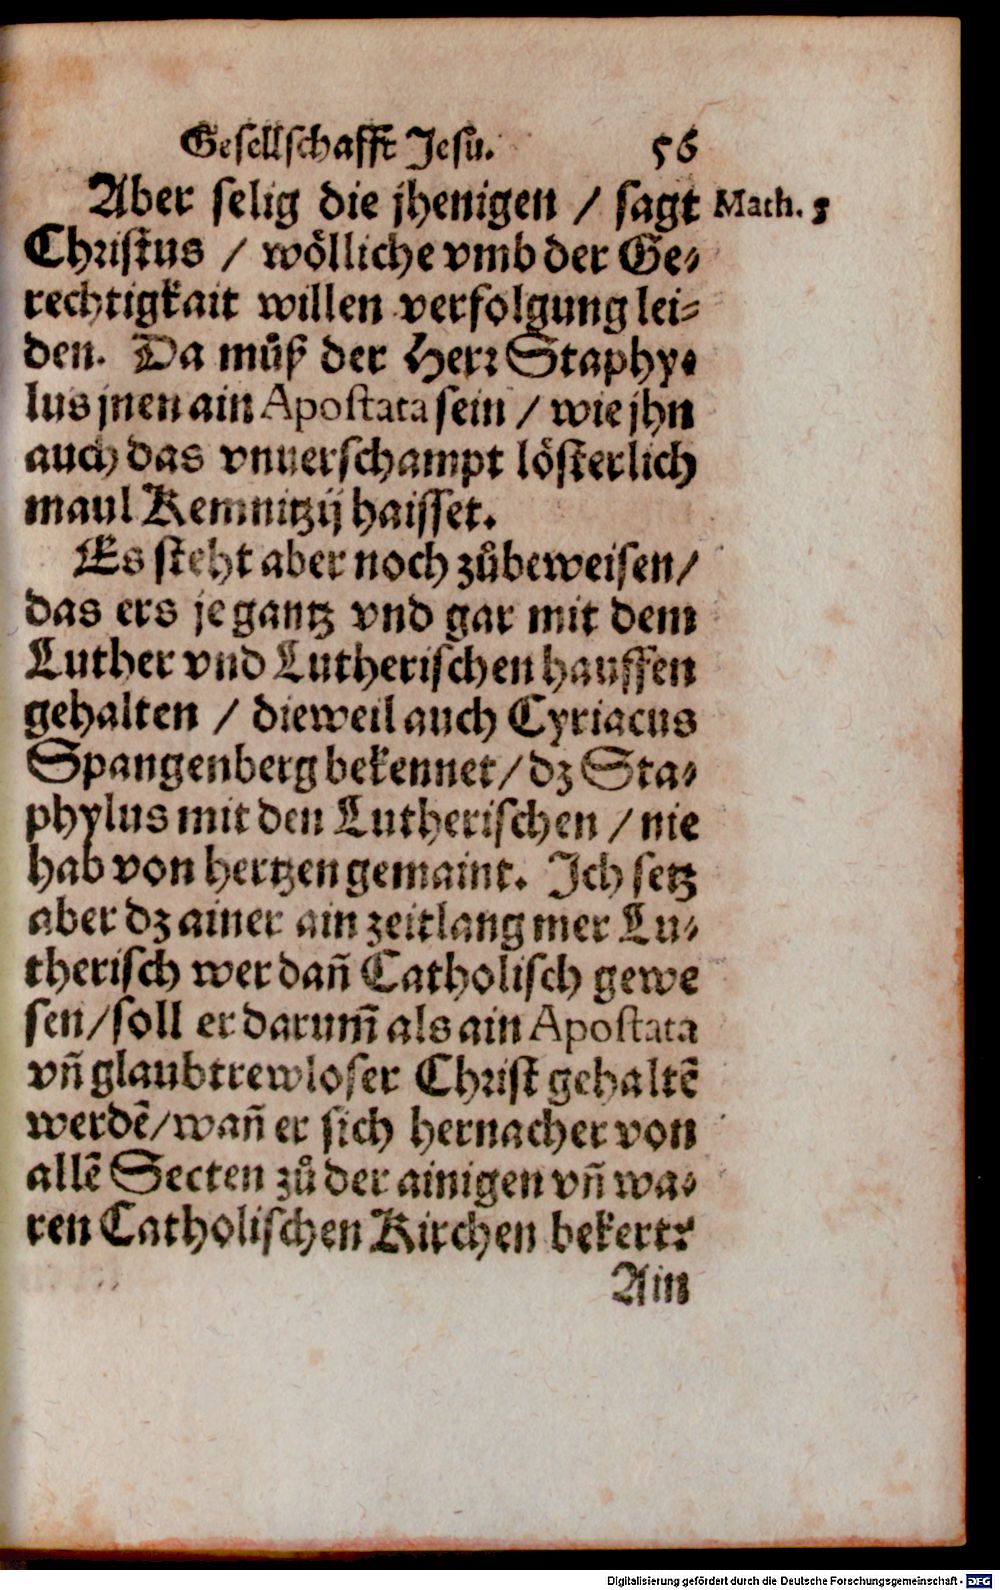 Gesellschafft Jesu. 56
Aber selig die jhenigen / sagt Math. 5
Christus / wölliche vmb der Ge⸗
rechtigkait willen verfolgung lei⸗
den. Da muͦß der Herr Staphy⸗
lus jnen ain Apostata sein / wie jhn
auch das vnuerschampt lösterlich
maul Kemnitzij haisset.
Es steht aber noch zuͦbeweisen /
das ers je gantz vnd gar mit dem
Luther vnd Lutherischen hauffen
gehalten / dieweil auch Cyriacus
Spangenberg bekennet / dz Sta⸗
phylus mit den Lutherischen / nie
hab von hertzen gemaint. Ich setz
aber dz ainer ain zeitlang mer Lu⸗
therisch wer dañ Catholisch gewe
sen / soll er darum̃ als ain Apostata
vñ glaubtrewloser Christ gehaltẽ
werdẽ / wañ er sich hernacher von
allẽ Secten zuͦ der ainigen vñ wa⸗
ren Catholischen Kirchen bekert?
Ain
Digitalisierung gefördert durch die Deutsche Forschungsgemeinschaft - DFG